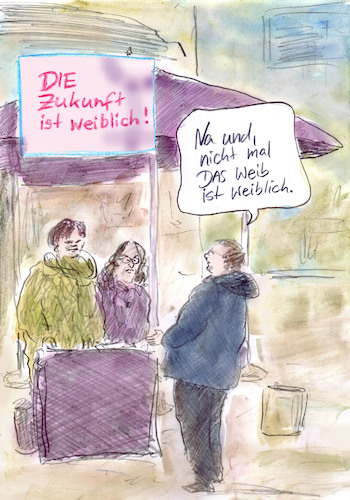 DIE
Zukunft
ist weiblich!
Na und,
nicht mal
DAS Weib
ist weiblich.